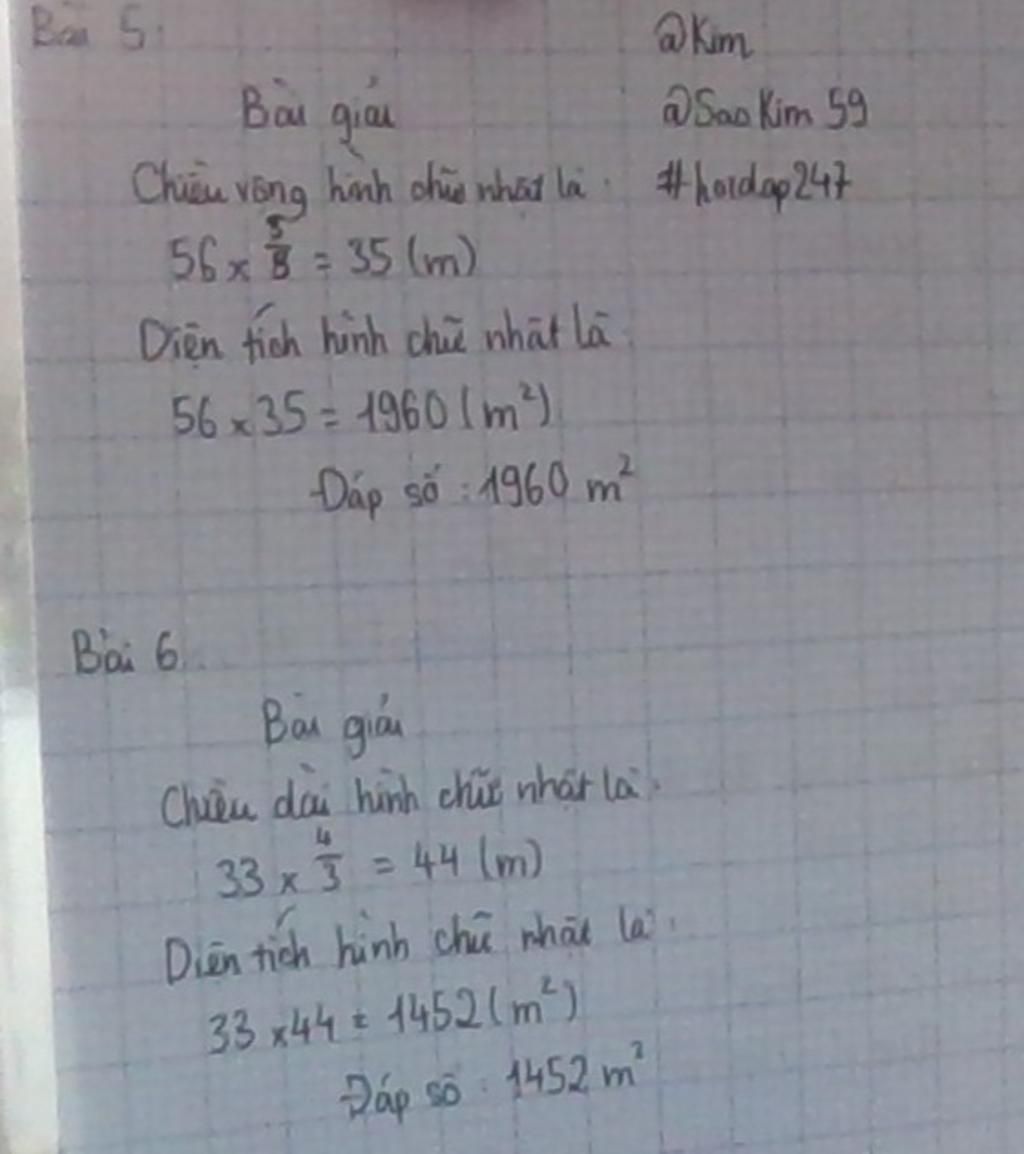 Bài 5:
@Kim
Bài giải
@SaoKim59
Chiều rộng hình chữ nhật là:
#hoidap247
56 × 5/8 = 35 (m)
Diện tích hình chữ nhật là:
56 × 35 = 1960 (m²)
Đáp số : 1960 m²
Bài 6:
Bài giải
Chiều dài hình chữ nhật là:
33 × 4/3 = 44 (m)
Diện tích hình chữ nhật là:
33 × 44 = 1452 (m²)
Đáp số : 1452 m²